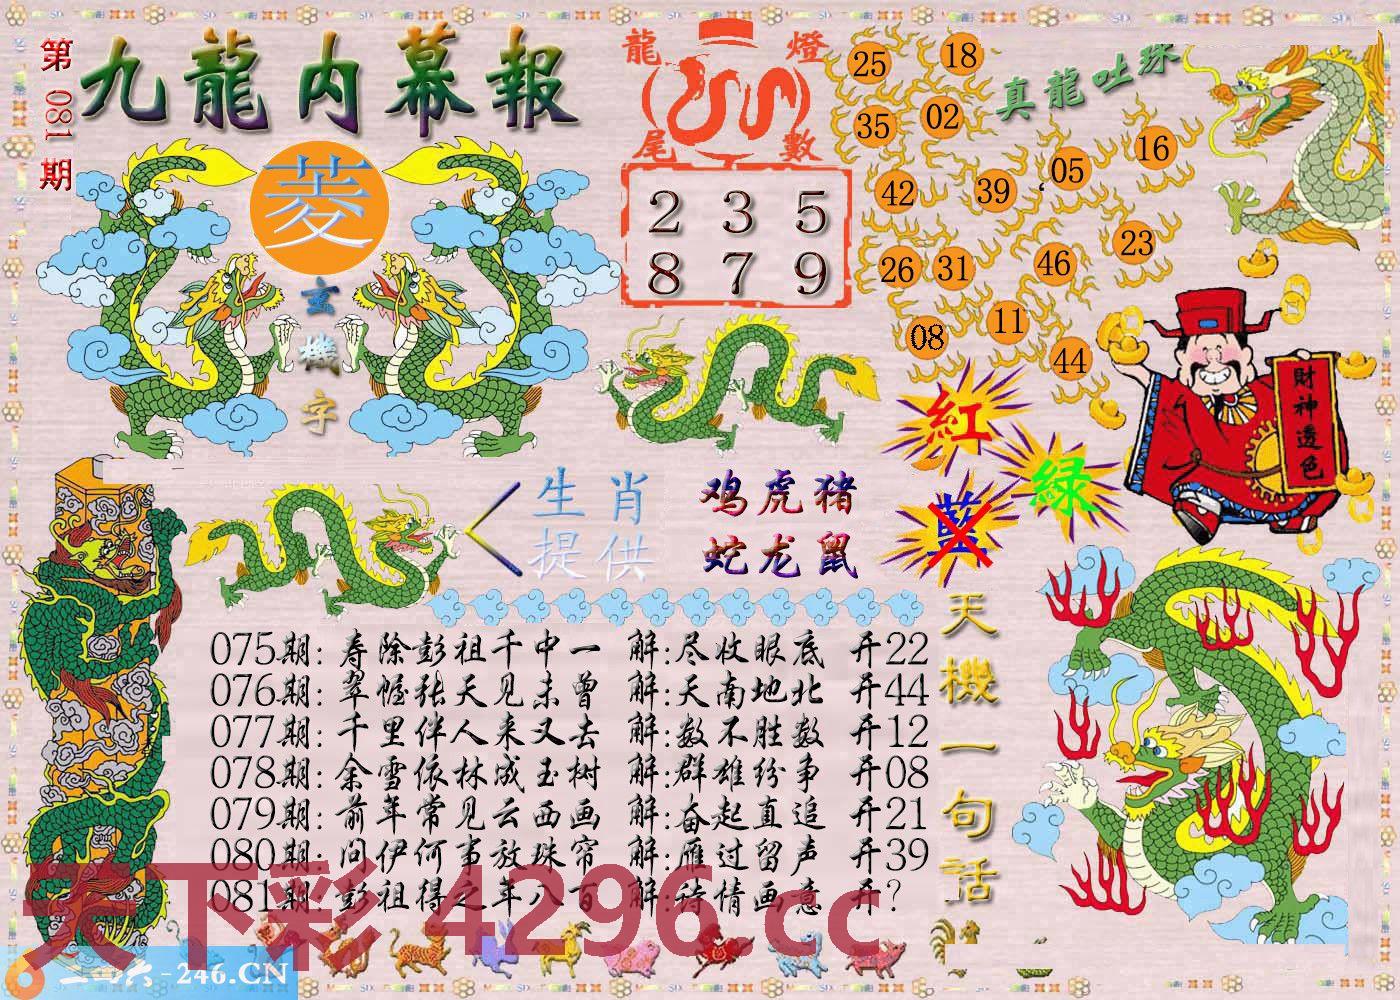 第081期
九龍内幕報
菱
玄機字
龍燈
尾數
2 3 5
8 7 9
真龍吐珠
25 18
35 02
42 39 05 16
26 31 46 23
08 11 44
財神透色
紅
綠
藍
生肖提供
鸡虎猪
蛇龙鼠
天機一句話
075期:寿除彭祖千中一 解:尽收眼底 开22
076期:翠幄张天见未曾 解:天南地北 开44
077期:千里伴人来又去 解:数不胜数 开12
078期:余雪依林成玉树 解:群雄纷争 开08
079期:前年常见云西画 解:奋起直追 开21
080期:问伊何事放珠帘 解:雁过留声 开39
081期:彭祖得之年八百 解:诗情画意 开?
天下彩 4296.cc
二四六-246.CN